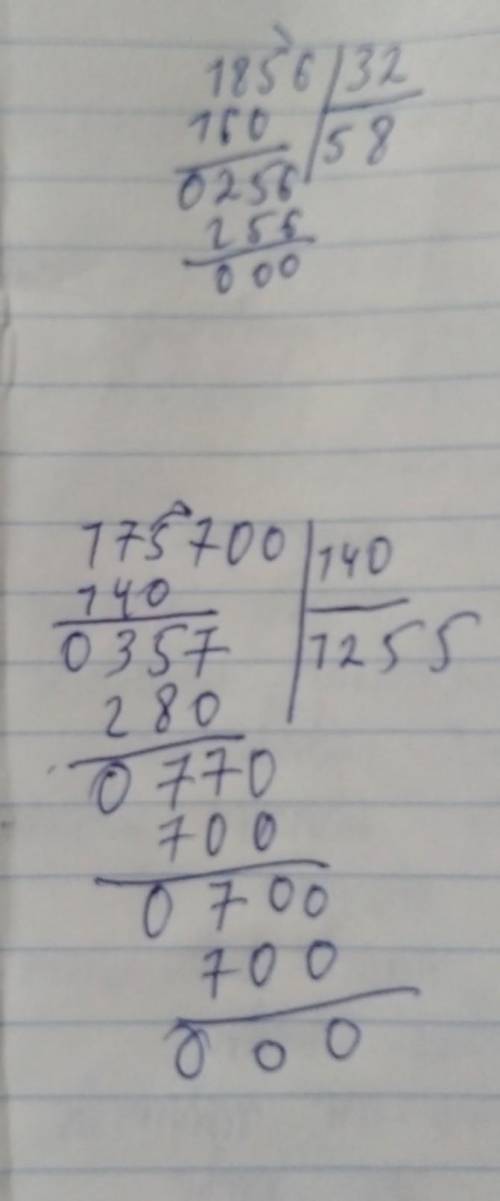 1856 32
160 58
0256
256
000
175700 140
140 1255
0357
280
0770
700
0700
700
000